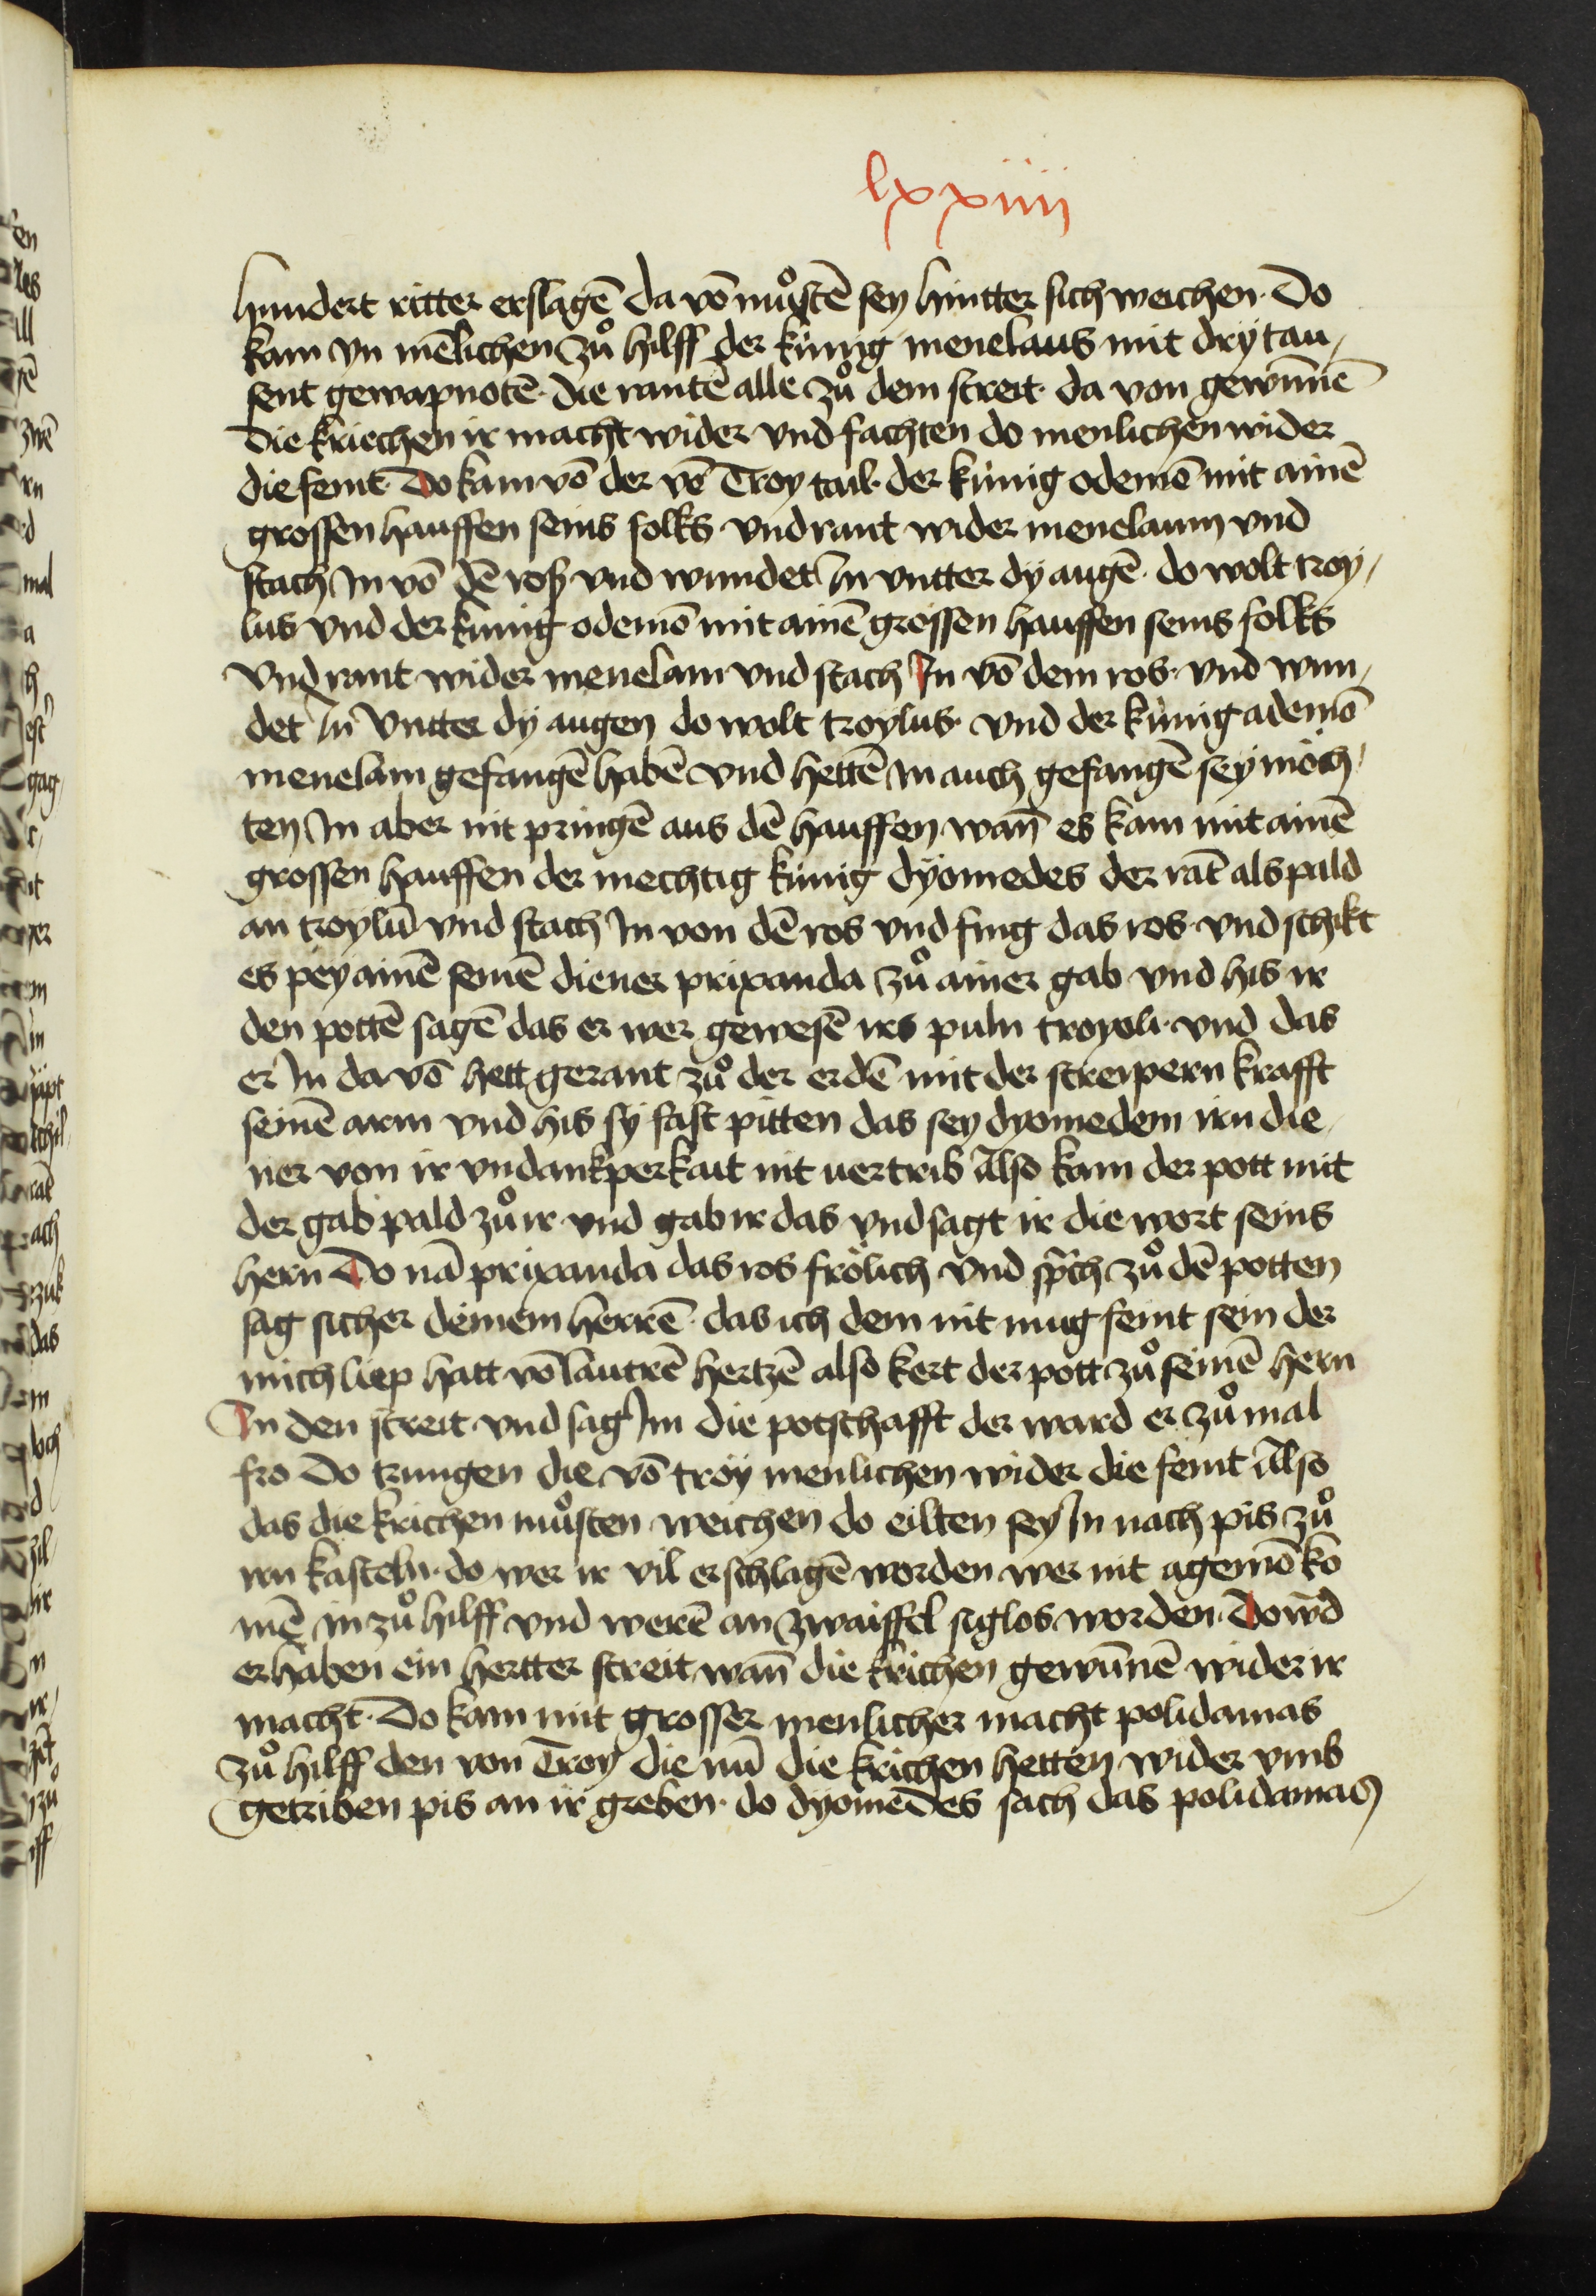 lxxiiij
hundert ritter erslagē da vō můstē sey hintter sich weichen· Do
kam yn mēlichen zů hilff der kúnig menelaus mit dry tau,
sent gewapnotē· die rantē alle zů dem streit· da von gewūnē
die kriechen ir macht wider vnd fachten do menlichen wider
die feint· Do kam vō der vō Troy tail· der kúnig odemō mit ainē
grossen hauffen seins folks vnd rant wider menelaum vnd
stach In vō dē roß vnd wundet In vntter dÿ augē· do wolt troy,
lus vnd der kúnig odemō mit ainē grossen hauffen seins folks
vnd rant wider menelam vnd stach In vō dem ros· vnd wun,
det In vntter dÿ augen do wolt troylus· vnd der kúnig ademō
menelam gefangē habē vnd hettē In auch gefangē sey möch,
ten In aber nit pringē aus dē hauffen wan̄ es kam mit ainē
grossen hauffen der mechtig kúnig dÿomedes der rāt als pald
an troylū vnd stach In von dē ros vnd fing das ros· vnd schikt
es pey ainē seinē diener prixanda zů ainer gab vnd his ir
den pottē sagē das er wer gewesē irs puln troyoli· vnd das
er In da vō hett gerant zů der erdē mit der streipern krafft
seinē arm vnd his sÿ fast pitten das sey dyomedem irn die,
ner von ir vndankperkait nit vertrib Also kam der pott mit
der gab pald zů ir vnd gab ir das vnd sagt ir die wort seins
hern Do nā prixanda das ros frölich vnd sprch zů dē potten
sag sicher deinem herrē· das ich dem nit mug feint sein der
mich liep hatt vō lautrē hertzē also kert der pott zů seinē hern
In den streit vnd sag Im die potschafft der ward er zů mal
fro Do trungen die vō troÿ menlichen wider die feint Also
das die krichen můsten weichen do eilten sey In nach pis zů
irn kasteln· do wer ir vil erschlagē worden wer nit agemō ko
mē in zů hilff vnd werē an zwaiffel siglos worden· Do wrd
erhaben ein hertter streit wan̄ die krichen gewūnē wider ir
macht· Do kam mit grosser menlicher macht polidamas
zů hilff den von Troy die nū die krichen hetten wider vmb
getriben pis an ir greben· do dyomedes sach das polidamas